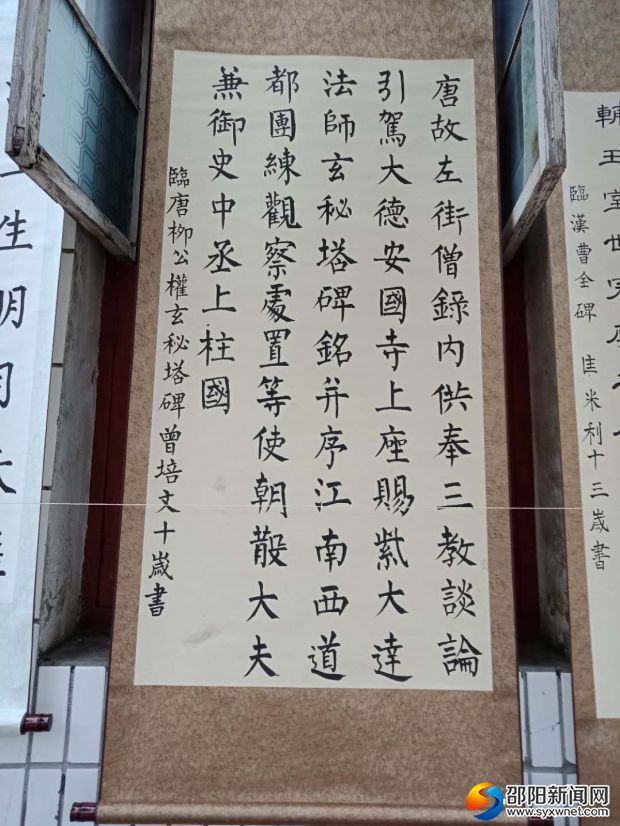 輔王室世宗
臨漢曹全碑 匡米利十三歲書
唐故左街僧錄內供奉三教談論
引駕大德安國寺上座賜紫大達
法師玄秘塔碑銘并序江南西道
都團練觀察處置等使朝散大夫
兼御史中丞上柱國
臨唐柳公權玄秘塔碑曾培文十歲書
上生明月天涯
邵阳新闻网
www.syxwnet.com